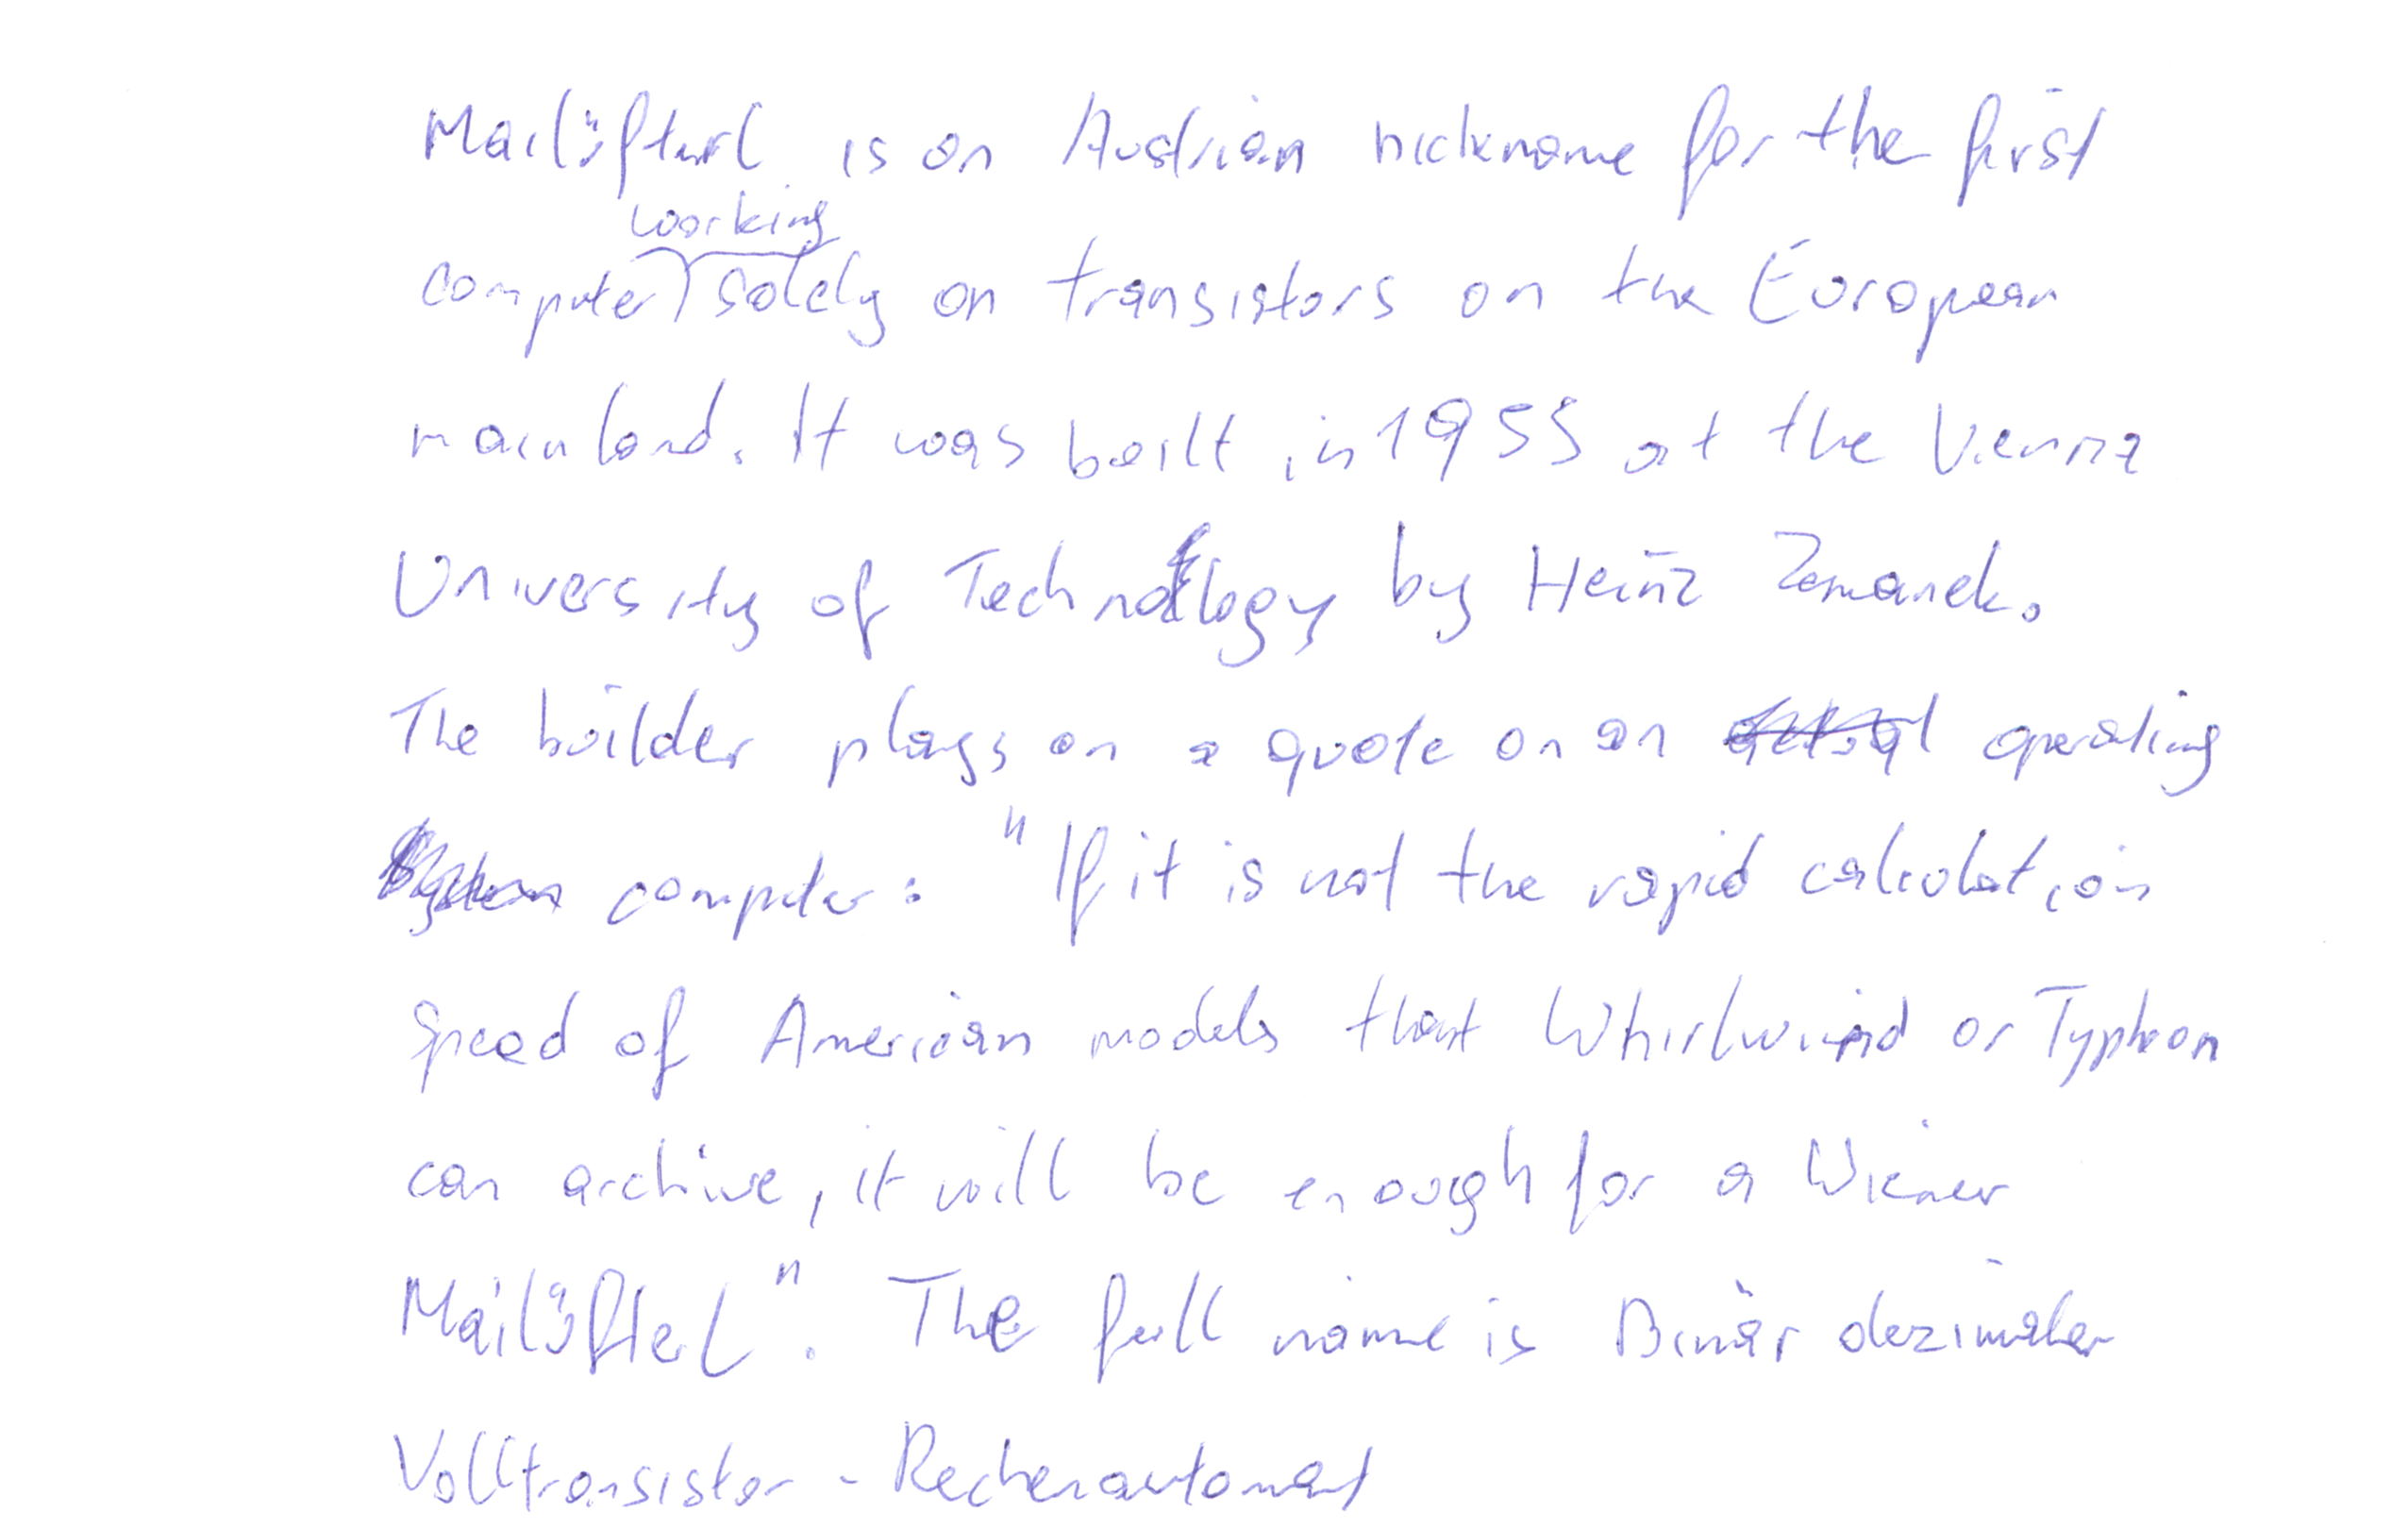 Mailüfterl is an Austrian nickname for the first
computer working solely on transistors on the European
mainland. It was built in 1955 at the Vienna
University of Technology by Heinz Zemanek.
The builder plays on a quote on an actual operating
system computer: "If it is not the rapid calculation
speed of American models that Whirlwind or Typhoon
can archive, it will be enough for a Wiener
Mailüfterl". The full name is Binär dezimaler
Volltransistor-Rechenautomat